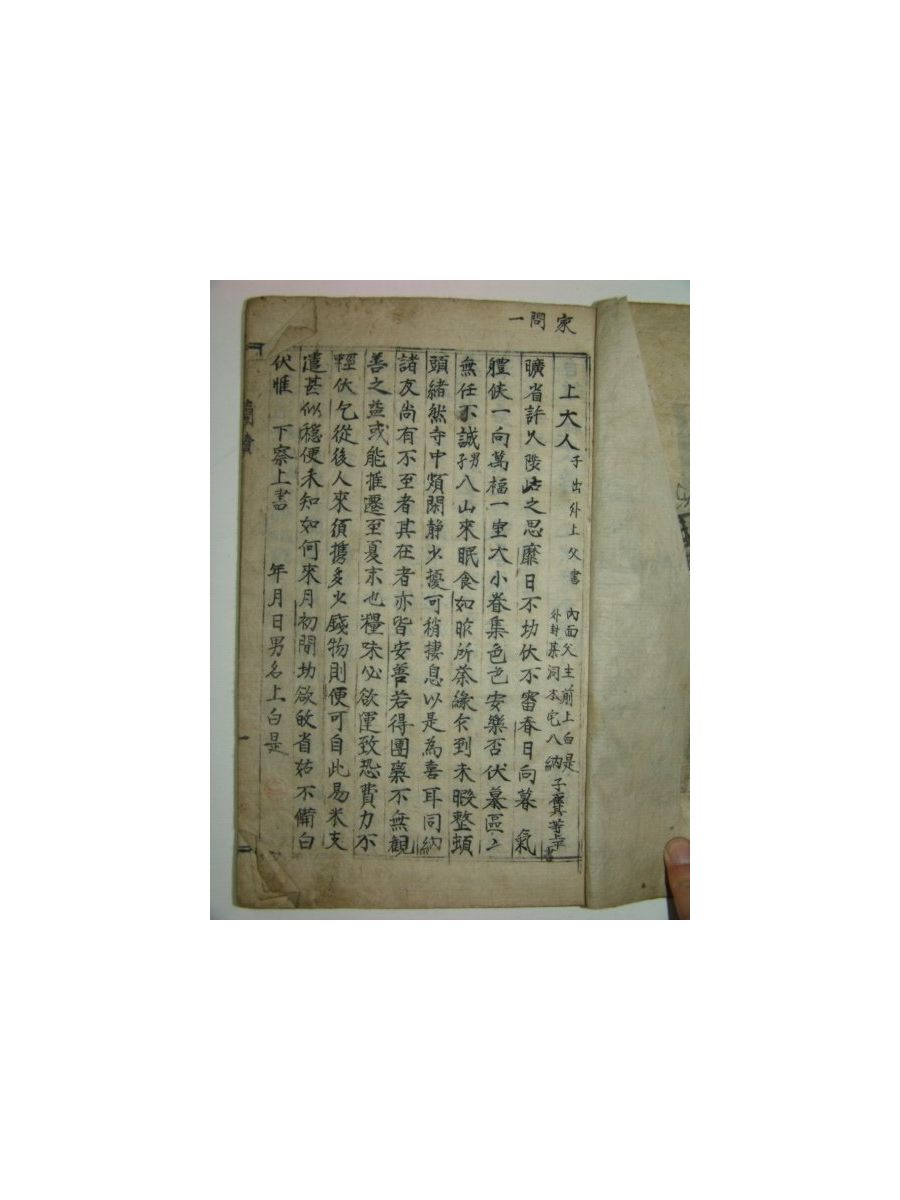 家問一
上大人 子出外上父書 內面父主前上白是
外封某洞本宅入納 子糞等 上書
曠省許久 陟岵之思靡日不切伏不審春日向暮 氣
軆候一向萬福一室大小眷集色色安樂否伏慕區區
無任不誠男子入山來眠食如昨所荼緣今到未暇整頓
頭緖然寺中頗閑靜少擾可稍捿息以是為喜耳同納
諸友尚有不至者其在者亦皆安善若得團藁不無觀
善之益或能推遷至夏末也糧味必欲運致恐費力不
輕伏乞從後人來須携多少錢物則便可自此易米支
遣甚似穩便未知如何來月初間切欲敀省姑不備白
伏惟 下察上書 年月日男名上白是